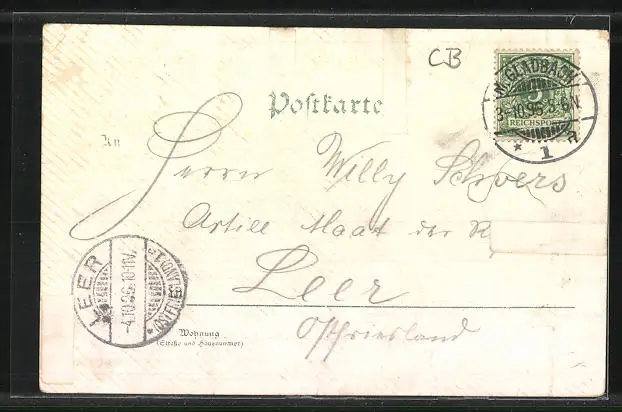 CB
M. GLADBACH
3.10.96.5-6N.
REICHSPOST
* 1
Postkarte
An
Herrn Willy
Maat der R
Leer
Ostfriesland
LEER
4.10.96.10-11V.
(OSTFRIESLAND)
Wohnung
(Straße und Hausnummer)